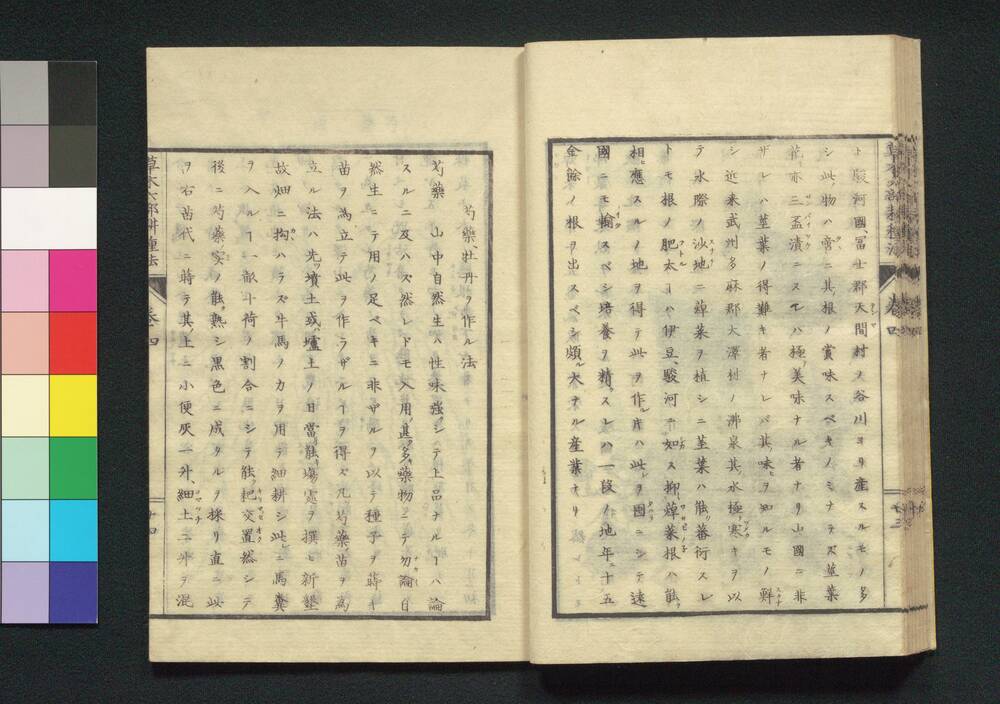 ト駿河國、冨士郡天間村ノ谷川ヨリ産スルモノ多
シ此物ハ啻ニ其根ノ賞味スベキノミナラズ莖葉
花亦三盃漬ニスレハ極美味ナル者ナリ山國ニ非
ザレハ莖葉ノ得難キ者ナレバ其味ヒヲ知ルモノ鮮
シ近来武州多麻郡大澤村ノ沸泉其水極寒キヲ以
テ水際ノ沙地ニ薄菜ヲ植シニ莖葉ハ能蕃衍スレ
トモ根ノ肥太ヿハ伊豆、駿河ニ不如ス抑薄菜根ハ能
相應スルノ地ヲ得テ此ヲ作片ハ此ヲ國ニシテ遠
國ニモ輸スベシ培養ヲ精スレハ一段ノ地年ニ十五
金餘ノ根ヲ出スベシ頗大ナル産業ナリ
芍藥、牡丹ヲ作ル法
芍藥 山中自然生ハ性味強シテ上品ナルヿハ論
スルニ及ハズ然レドモ入用甚多藥物ニテ勿論自
然生ニテ用ノ足ベキニ非ザルヲ以テ種子ヲ蒔キ
苗ヲ為立テ此ヲ作ラザルヿヲ得ズ凡芍藥苗ヲ為
立ル法ハ先ツ墳土或ハ壚土ノ日當能場處ヲ撰ヒ新墾
故畑ニ拘ハラズ牛馬ノカヲ用テ細耕シ此ニ馬糞
ヲ入ルヿ一畝十荷ノ割合ニシテ能耙交置然シテ
後ニ芍藥ノ實ノ能熟シ黒色ニ成タルヲ採リ直ニ此
ヲ右苗代ニ蒔テ其上ニ小便灰一外、細土二外ヲ混
草木六部耕種法
卷四
十四